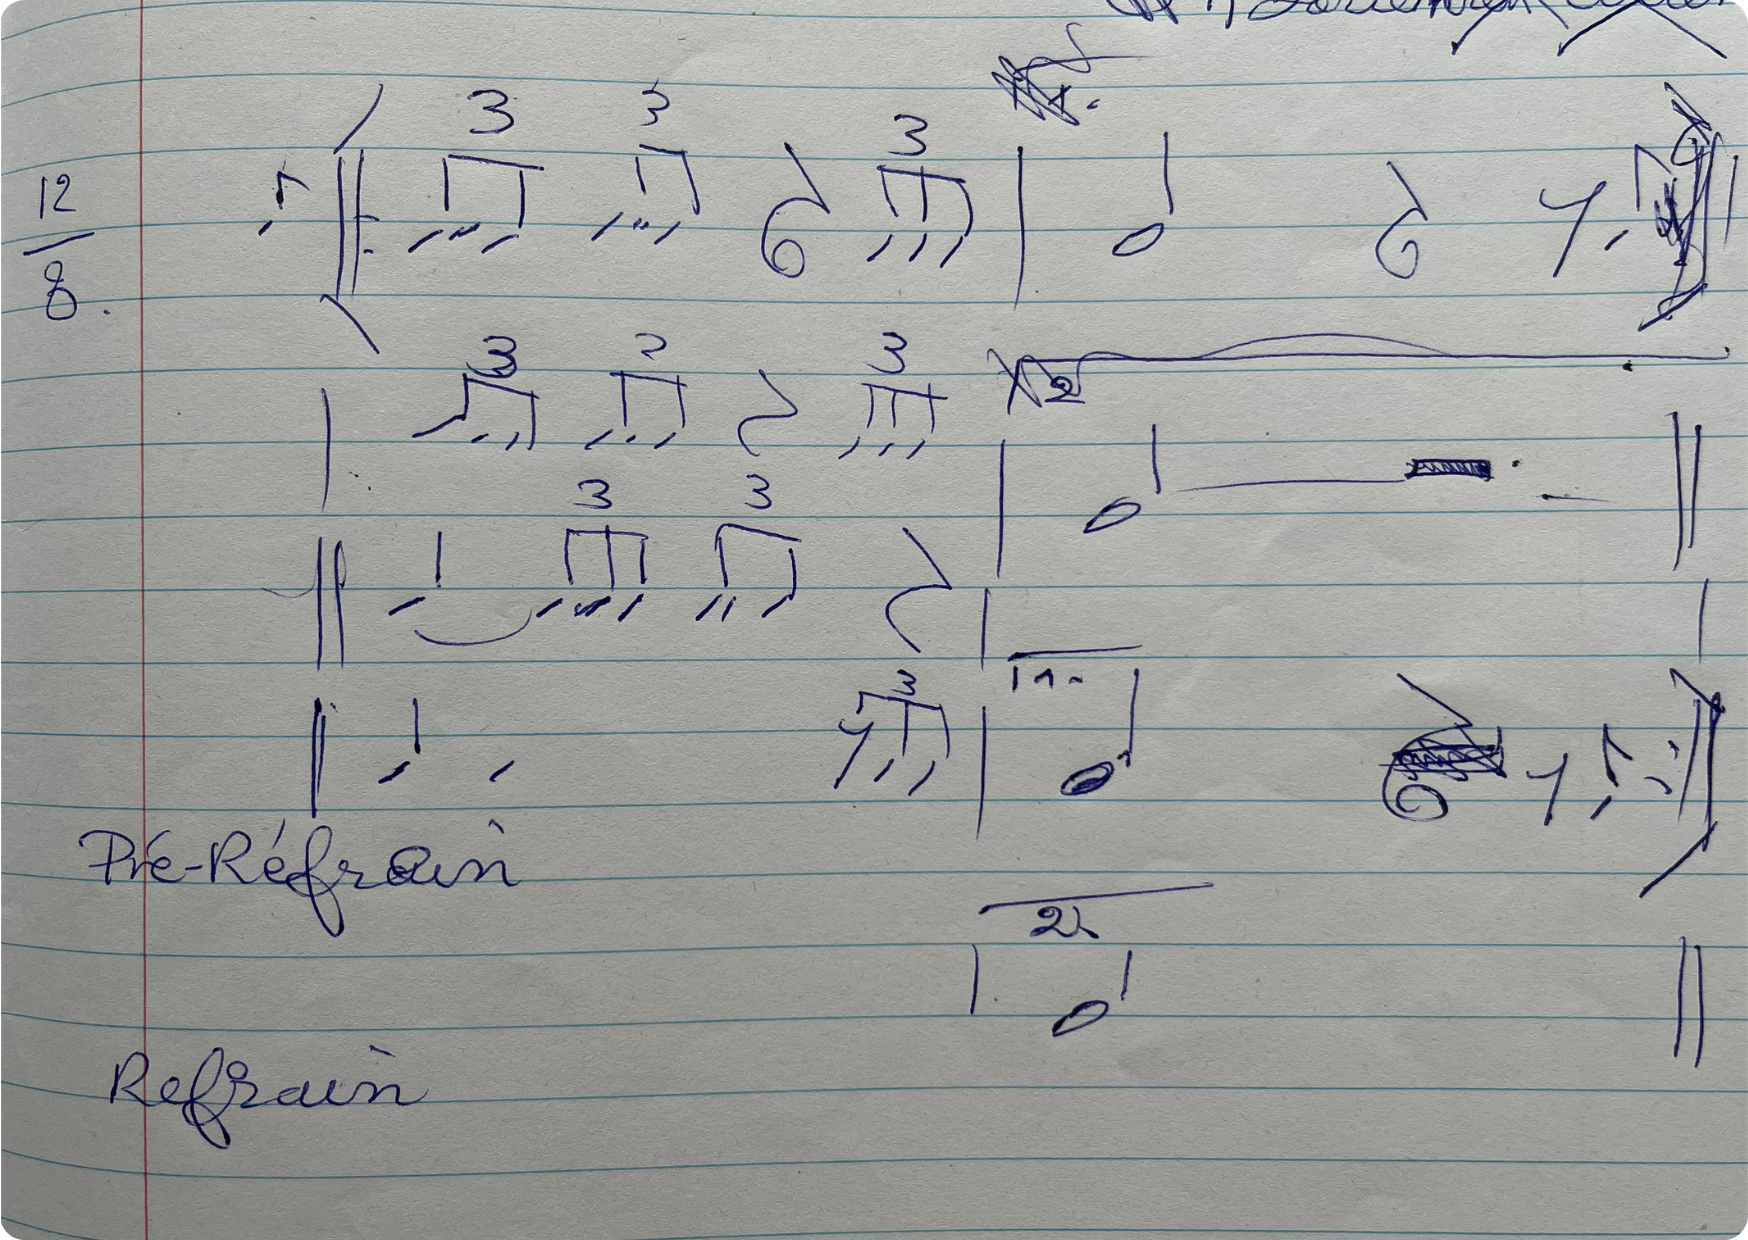 12
8.
3 3 3
1.
3 3
2
3 3
3
1.
Pré-Réfrain
2.
Refrain